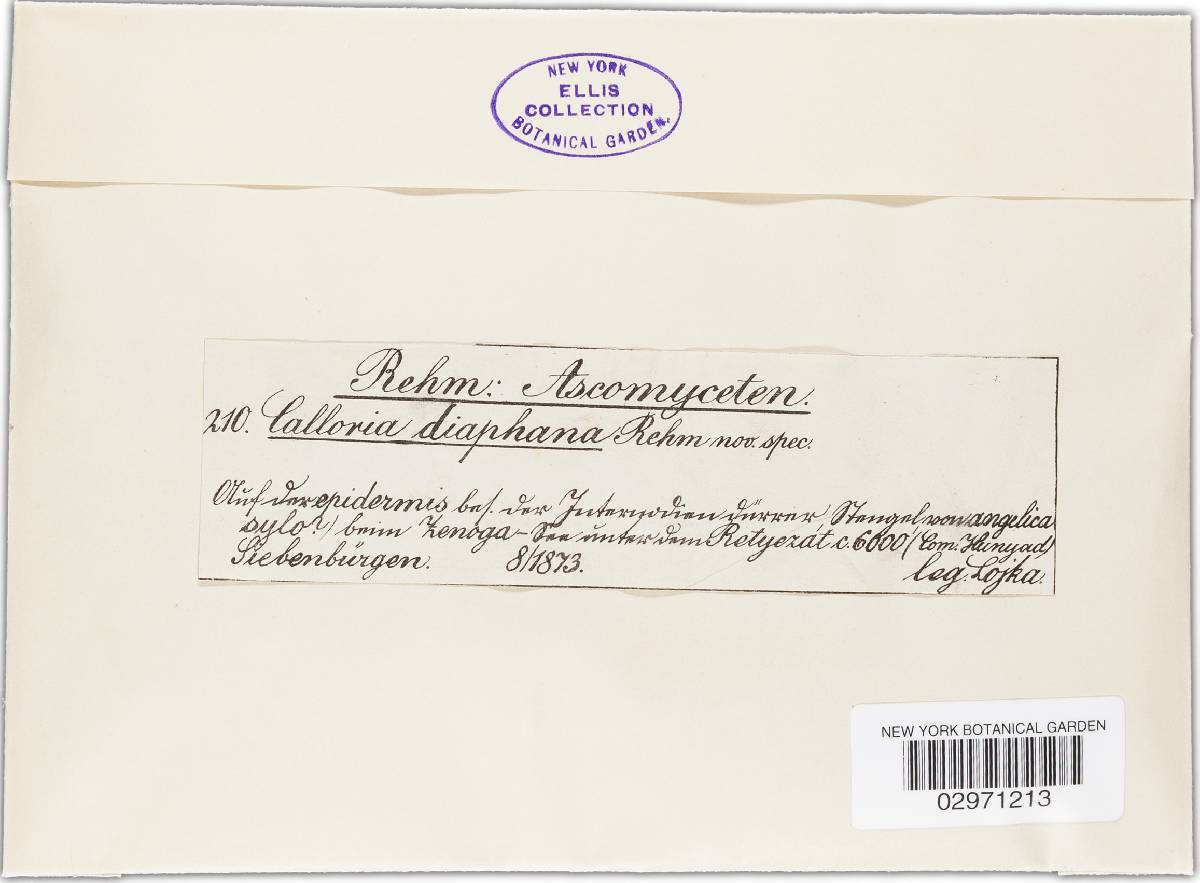 NEW YORK
ELLIS
COLLECTION
BOTANICAL GARDEN.
Rehm: Ascomyceten.
210. Calloria diaphana Rehm nov. spec.
Auf der epidermis bes. der Internodien dürrer Stengel von angelica
sylv?) beim Zenoga-See unter dem Retyezát c. 6000' (Com. Hunyad)
Siebenbürgen. 8/1873. leg. Lojka.
NEW YORK BOTANICAL GARDEN
02971213